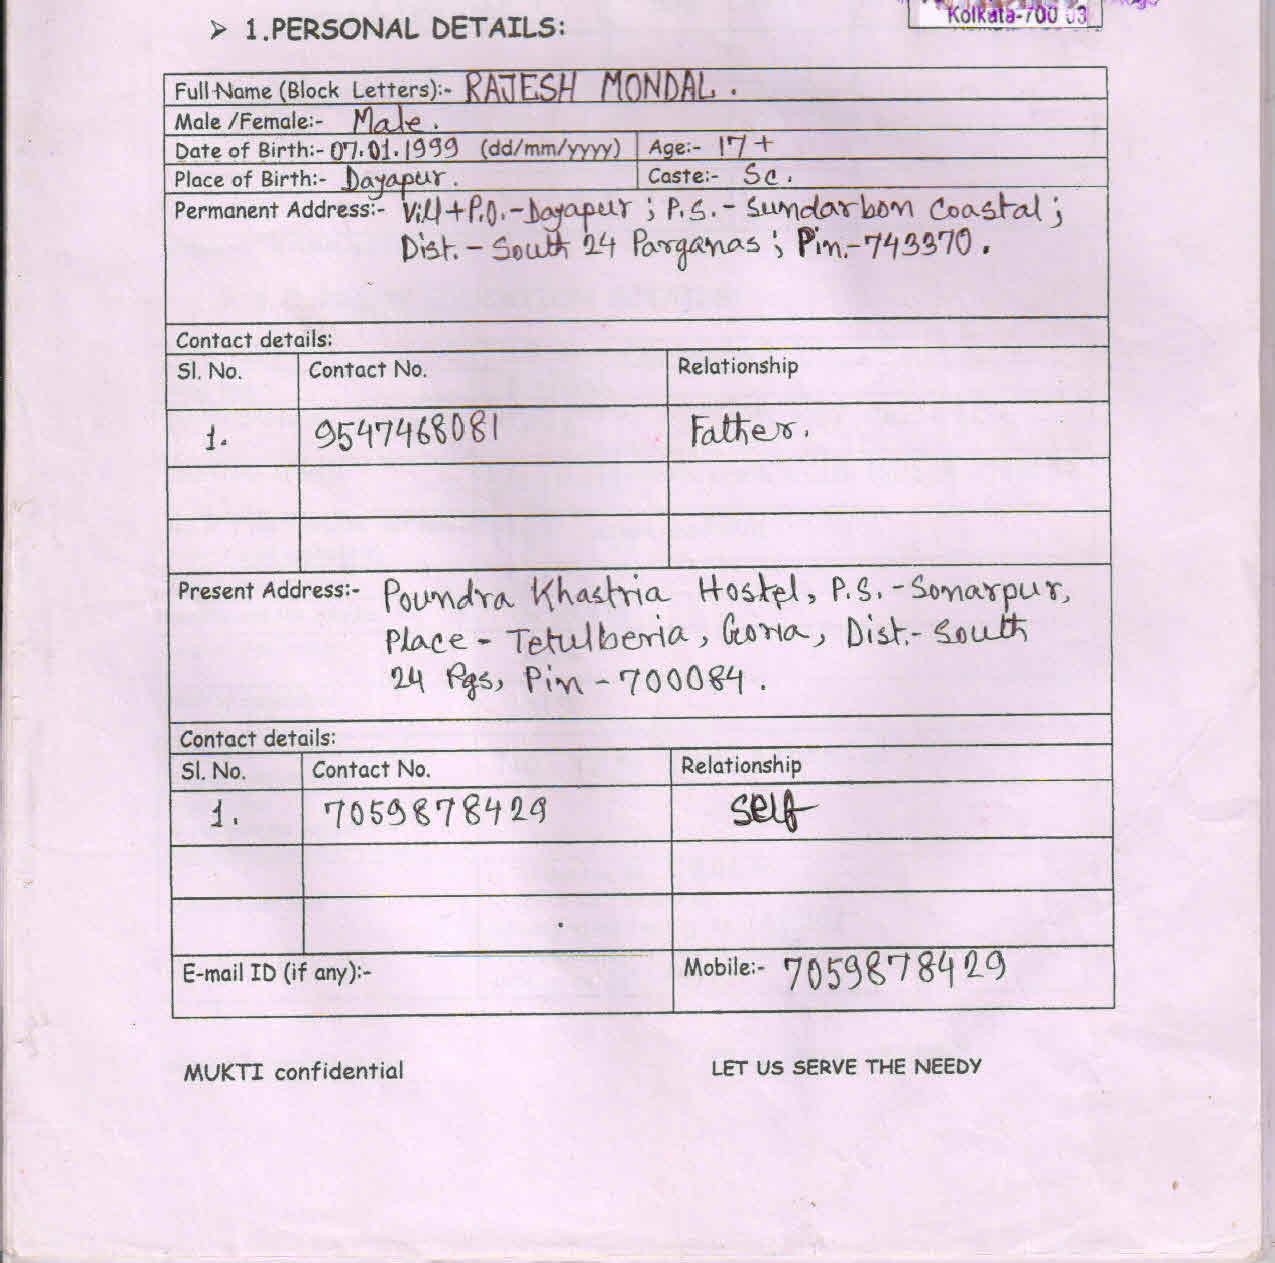 Kolkata-700 03
➢ 1.PERSONAL DETAILS:
Full Name (Block Letters):- RAJESH MONDAL.
Male /Female:- Male.
Date of Birth:- 07.01.1999 (dd/mm/yyyy) Age:- 17+
Place of Birth:- Dayapur. Caste:- Sc.
Permanent Address:- Vill+P.O.-Dayapur ; P.S.- Sundarbon Coastal ;
Dist.- South 24 Parganas ; Pin.-743370.
Contact details:
Sl. No. Contact No. Relationship
1. 9547468081 Father.
Present Address:- Poundra Khastria Hostel, P.S.-Sonarpur,
Place - Tetulberia, Goria, Dist.- South
24 Pgs, Pin - 700084.
Contact details:
Sl. No. Contact No. Relationship
1. 7059878429 Self
E-mail ID (if any):- Mobile:- 7059878429
MUKTI confidential LET US SERVE THE NEEDY